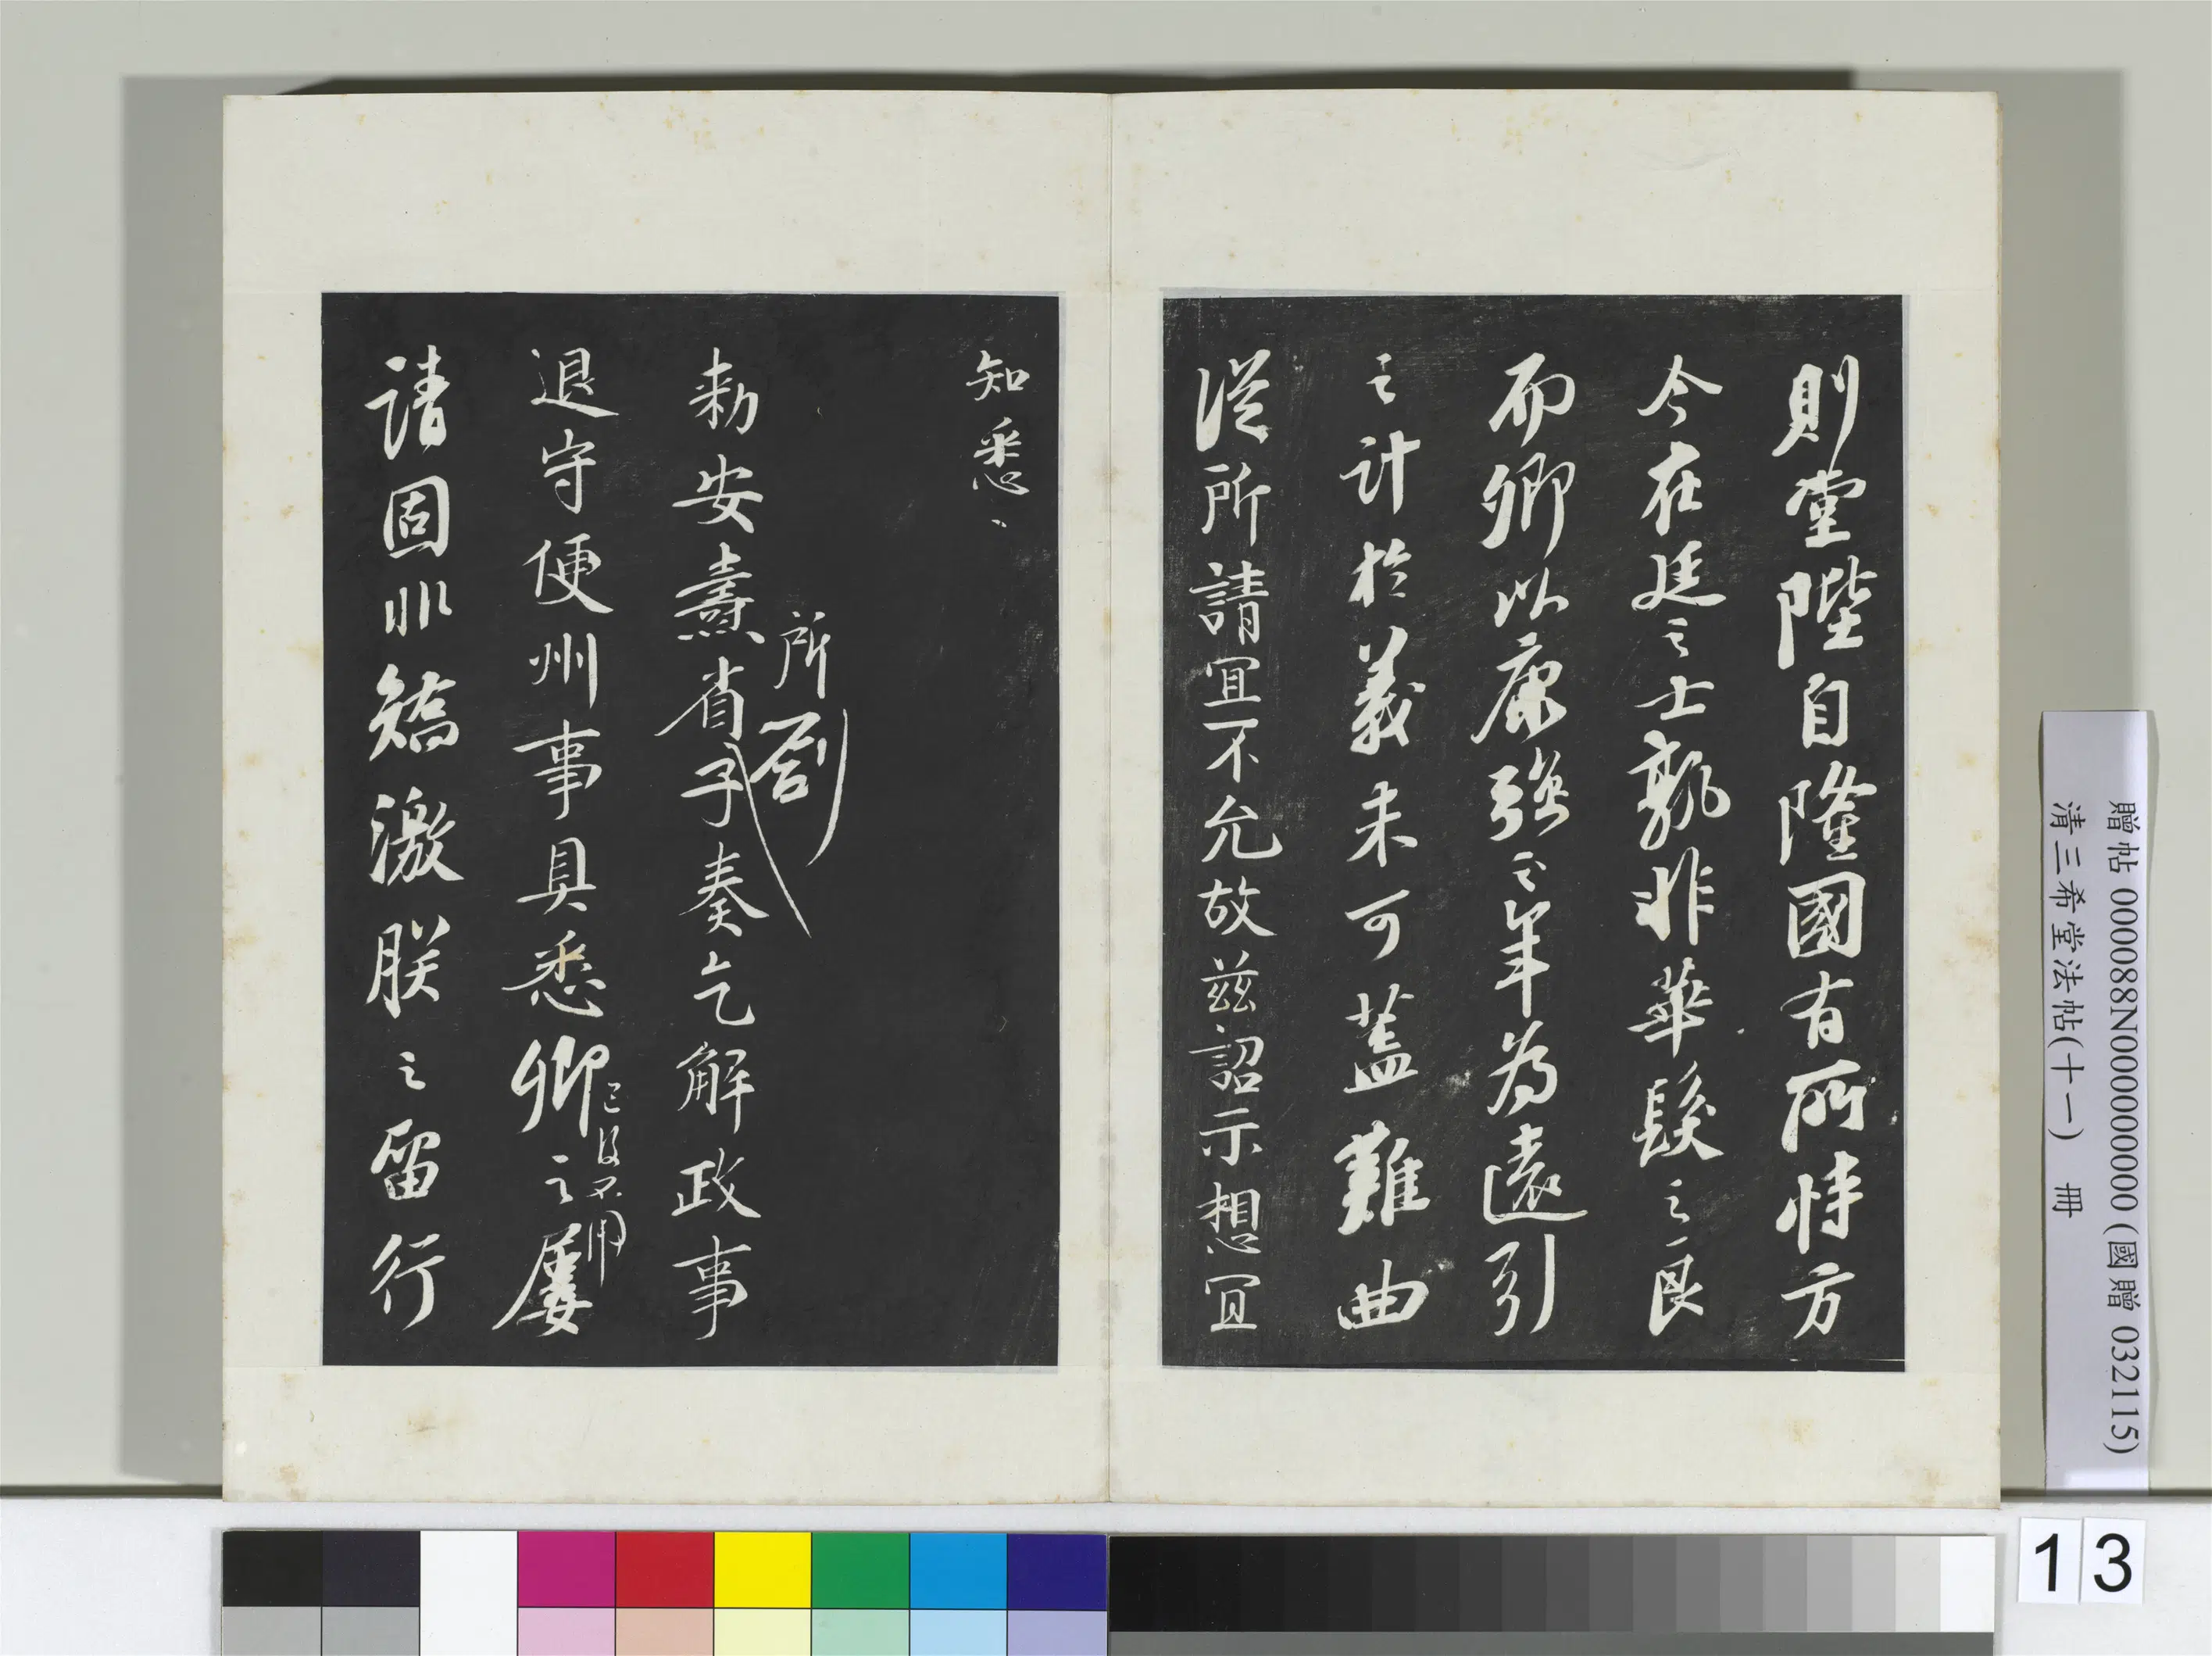 則堂陛自隆國有所恃方
今在廷之士孰非華髮之良
而卿以康強之年為遠引
之計於義未可蓋難曲
從所請宜不允故茲詔示想宜
知悉
所劄
勅安燾省子奏乞解政事
退守便州事具悉卿之屢
已後不用
請固非矯激朕之留行
贈帖 000088N000000000 (國贈 032115)
清三希堂法帖(十一) 冊
13